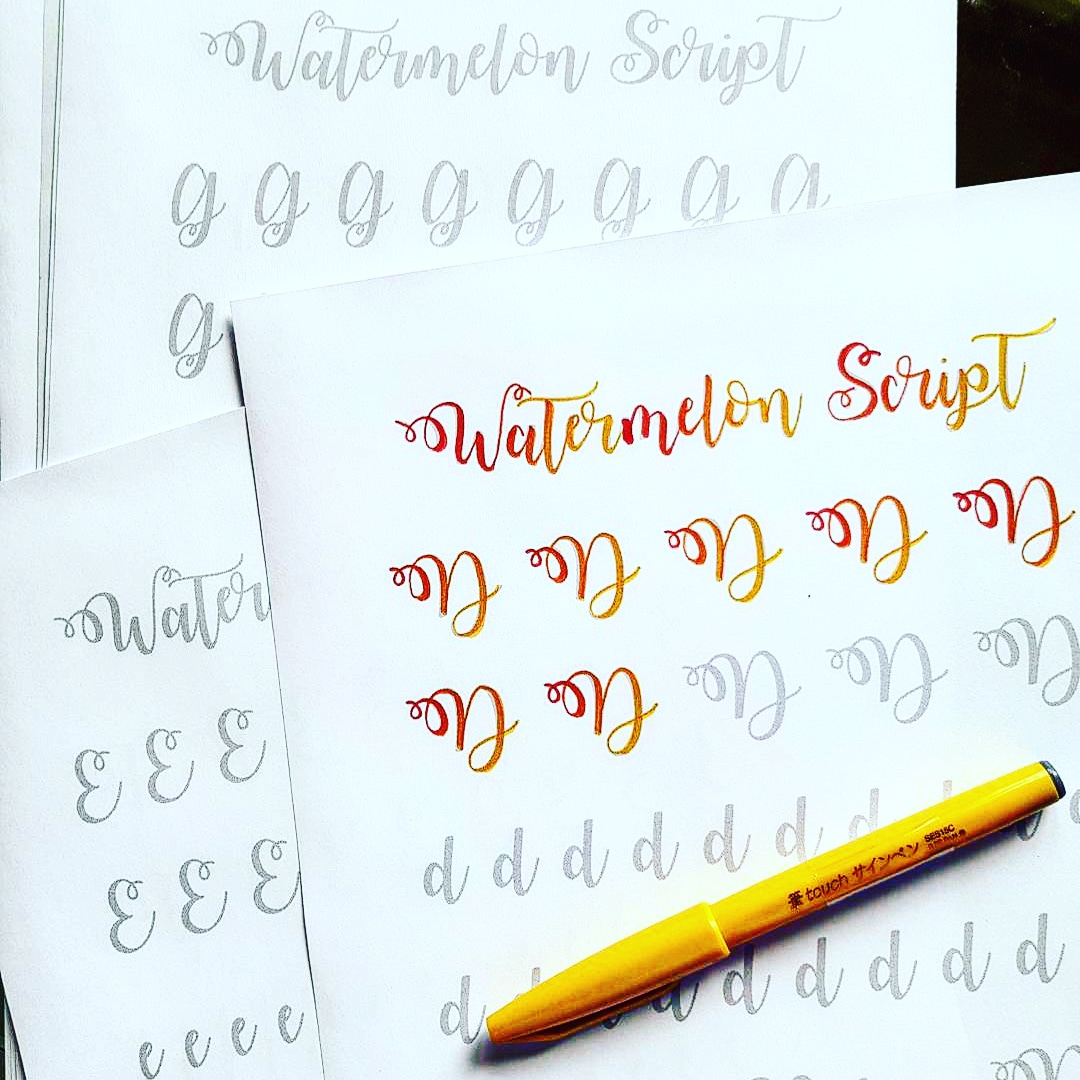 Watermelon Script
g g g g g g g g
g
Watermelon Script
D D D D D
D D D D D
d d d d d d d
d d d d d d
Water
E E E
E E E
e e e e
筆touch サインペン SES15C